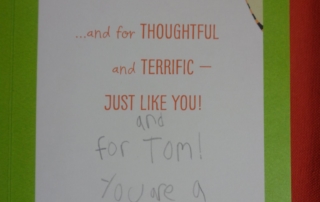 ...and for THOUGHTFUL
and TERRIFIC —
JUST LIKE YOU!
and
for Tom!
You are a